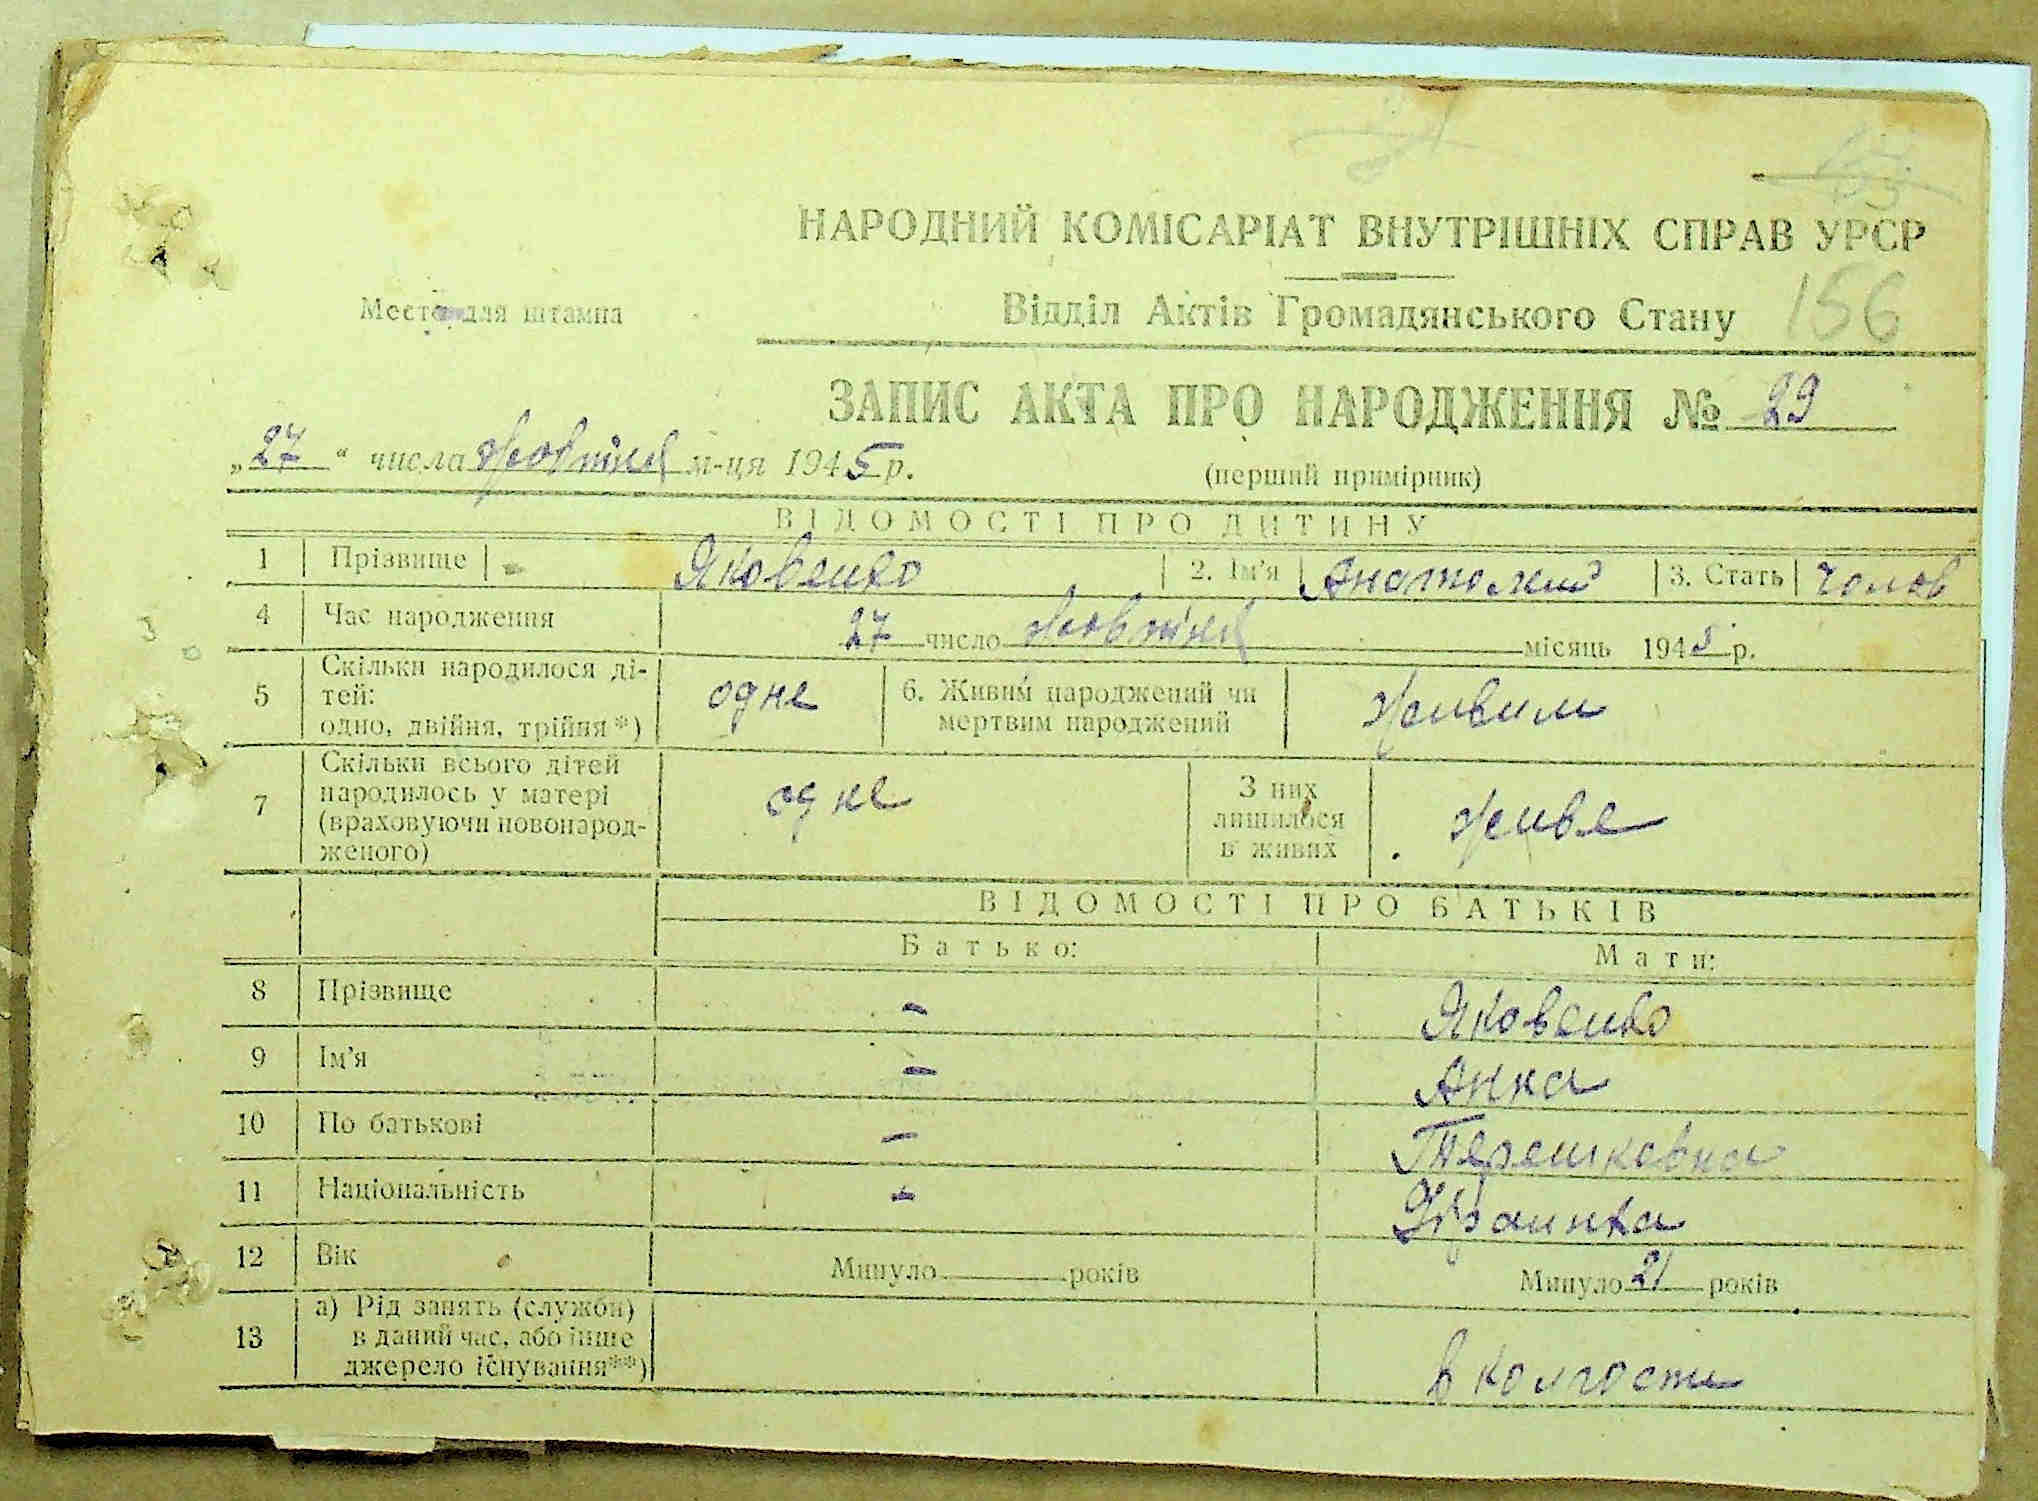 НАРОДНИЙ КОМІСАРІАТ ВНУТРІШНІХ СПРАВ УРСР
Место для штампа
Відділ Актів Громадянського Стану 156
ЗАПИС АКТА ПРО НАРОДЖЕННЯ № 29
„27“ числа жовтня м-ця 1945 р.
(перший примірник)
ВІДОМОСТІ ПРО ДИТИНУ
1 Прізвище Яковенко 2. Ім'я Анатолий 3. Стать чолов
4 Час народження 27 число жовтня місяць 1945 р.
5 Скільки народилося ді-
тей:
одно, двійня, трійня*) одне 6. Живим народжений чи
мертвим народжений живим
7 Скільки всього дітей
народилось у матері
(враховуючи новонарод-
женого) одне З них
лишилося
в живих живе
ВІДОМОСТІ ПРО БАТЬКІВ
Батько: Мати:
8 Прізвище - Яковенко
9 Ім'я - Анна
10 По батькові - Терешковна
11 Національність - Украинка
12 Вік Минуло років Минуло 21 років
13 а) Рід занять (служби)
в даний час, або інше
джерело існування**) в колгости